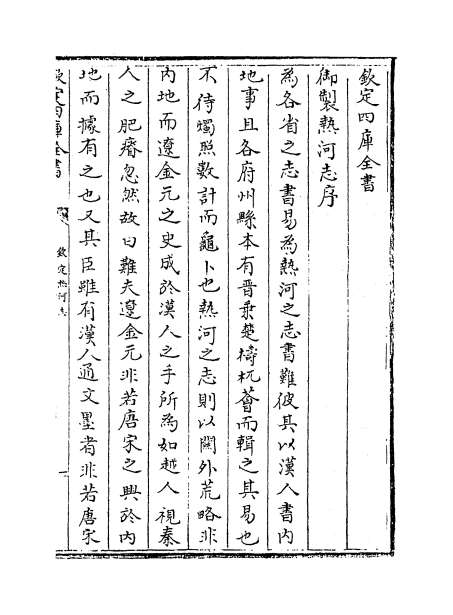 欽定四庫全書
御製熱河志序
為各省之志書易為熱河之志書難彼其以漢人書内
地事且各府州縣本有晋乗楚檮杌薈而輯之其易也
不待燭照數計而龜卜也熱河之志則以關外荒略非
内地而遼金元之史成於漢人之手所為如越人視秦
人之肥瘠忽然故曰難夫遼金元非若唐宋之興於内
地而據有之也又其臣雖有漢人通文墨者非若唐宋
欽定四庫全書
欽定熱河志
一